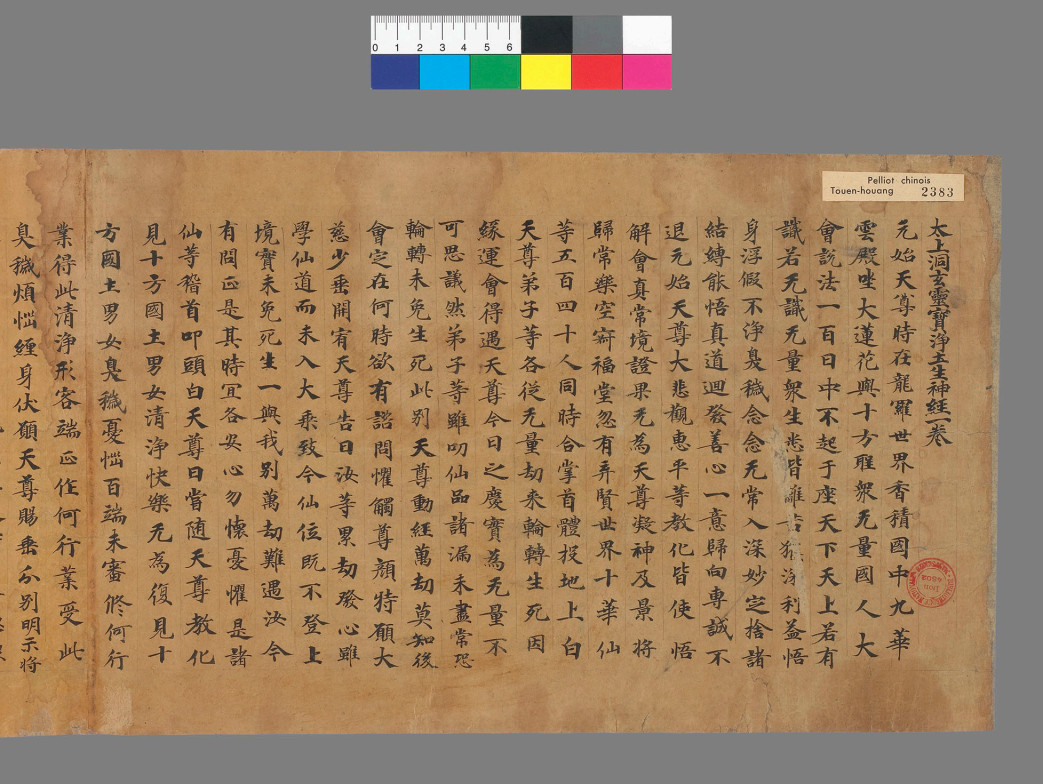 Pelliot chinois
Touen-houang 2383
0 1 2 3 4 5 6
太上洞玄靈寶浄土生神經一卷
元始天尊時在龍羅世界香積國中九華
雲殿坐大蓮花與十方聖衆无量國人大
會説法一百日中不起于座天下天上若有
識若无識无量衆生悉皆離苦獲淂利益悟
身浮假不浄臭穢念念无常入深妙定捨諸
結縛能悟真道迴發善心一意歸向專誠不
退元始天尊大悲觀惠平等教化皆使悟
解會真常境證果无為天尊凝神及景將
歸常樂空寂福堂忽有弄賢世界十華仙
等五百四十人同時合掌首體投地上白
天尊弟子等各従无量劫来輪轉生死因
緣運會得遇天尊今日之慶實為无量不
可思議然弟子等雖叨仙品諸漏未盡常恐
輪轉未免生死此别天尊動經萬劫莫知後
會定在何時欲有諮問懼觸尊顔特願大
慈少垂開宥天尊告曰汝等累劫發心雖
學仙道而未入大乘致令仙位既不登上
境實未免死生一與我别萬劫難遇汝今
有問正是其時冝各安心勿懐憂懼是諸
仙等稽首叩頭白天尊曰當随天尊教化
見十方國土男女清浄快樂无為復見十
方國土男女臭穢憂惱百端未審修何行
業得此清浄形容端正作何行業受此
臭穢煩惱纏身伏願天尊賜垂分别明示将